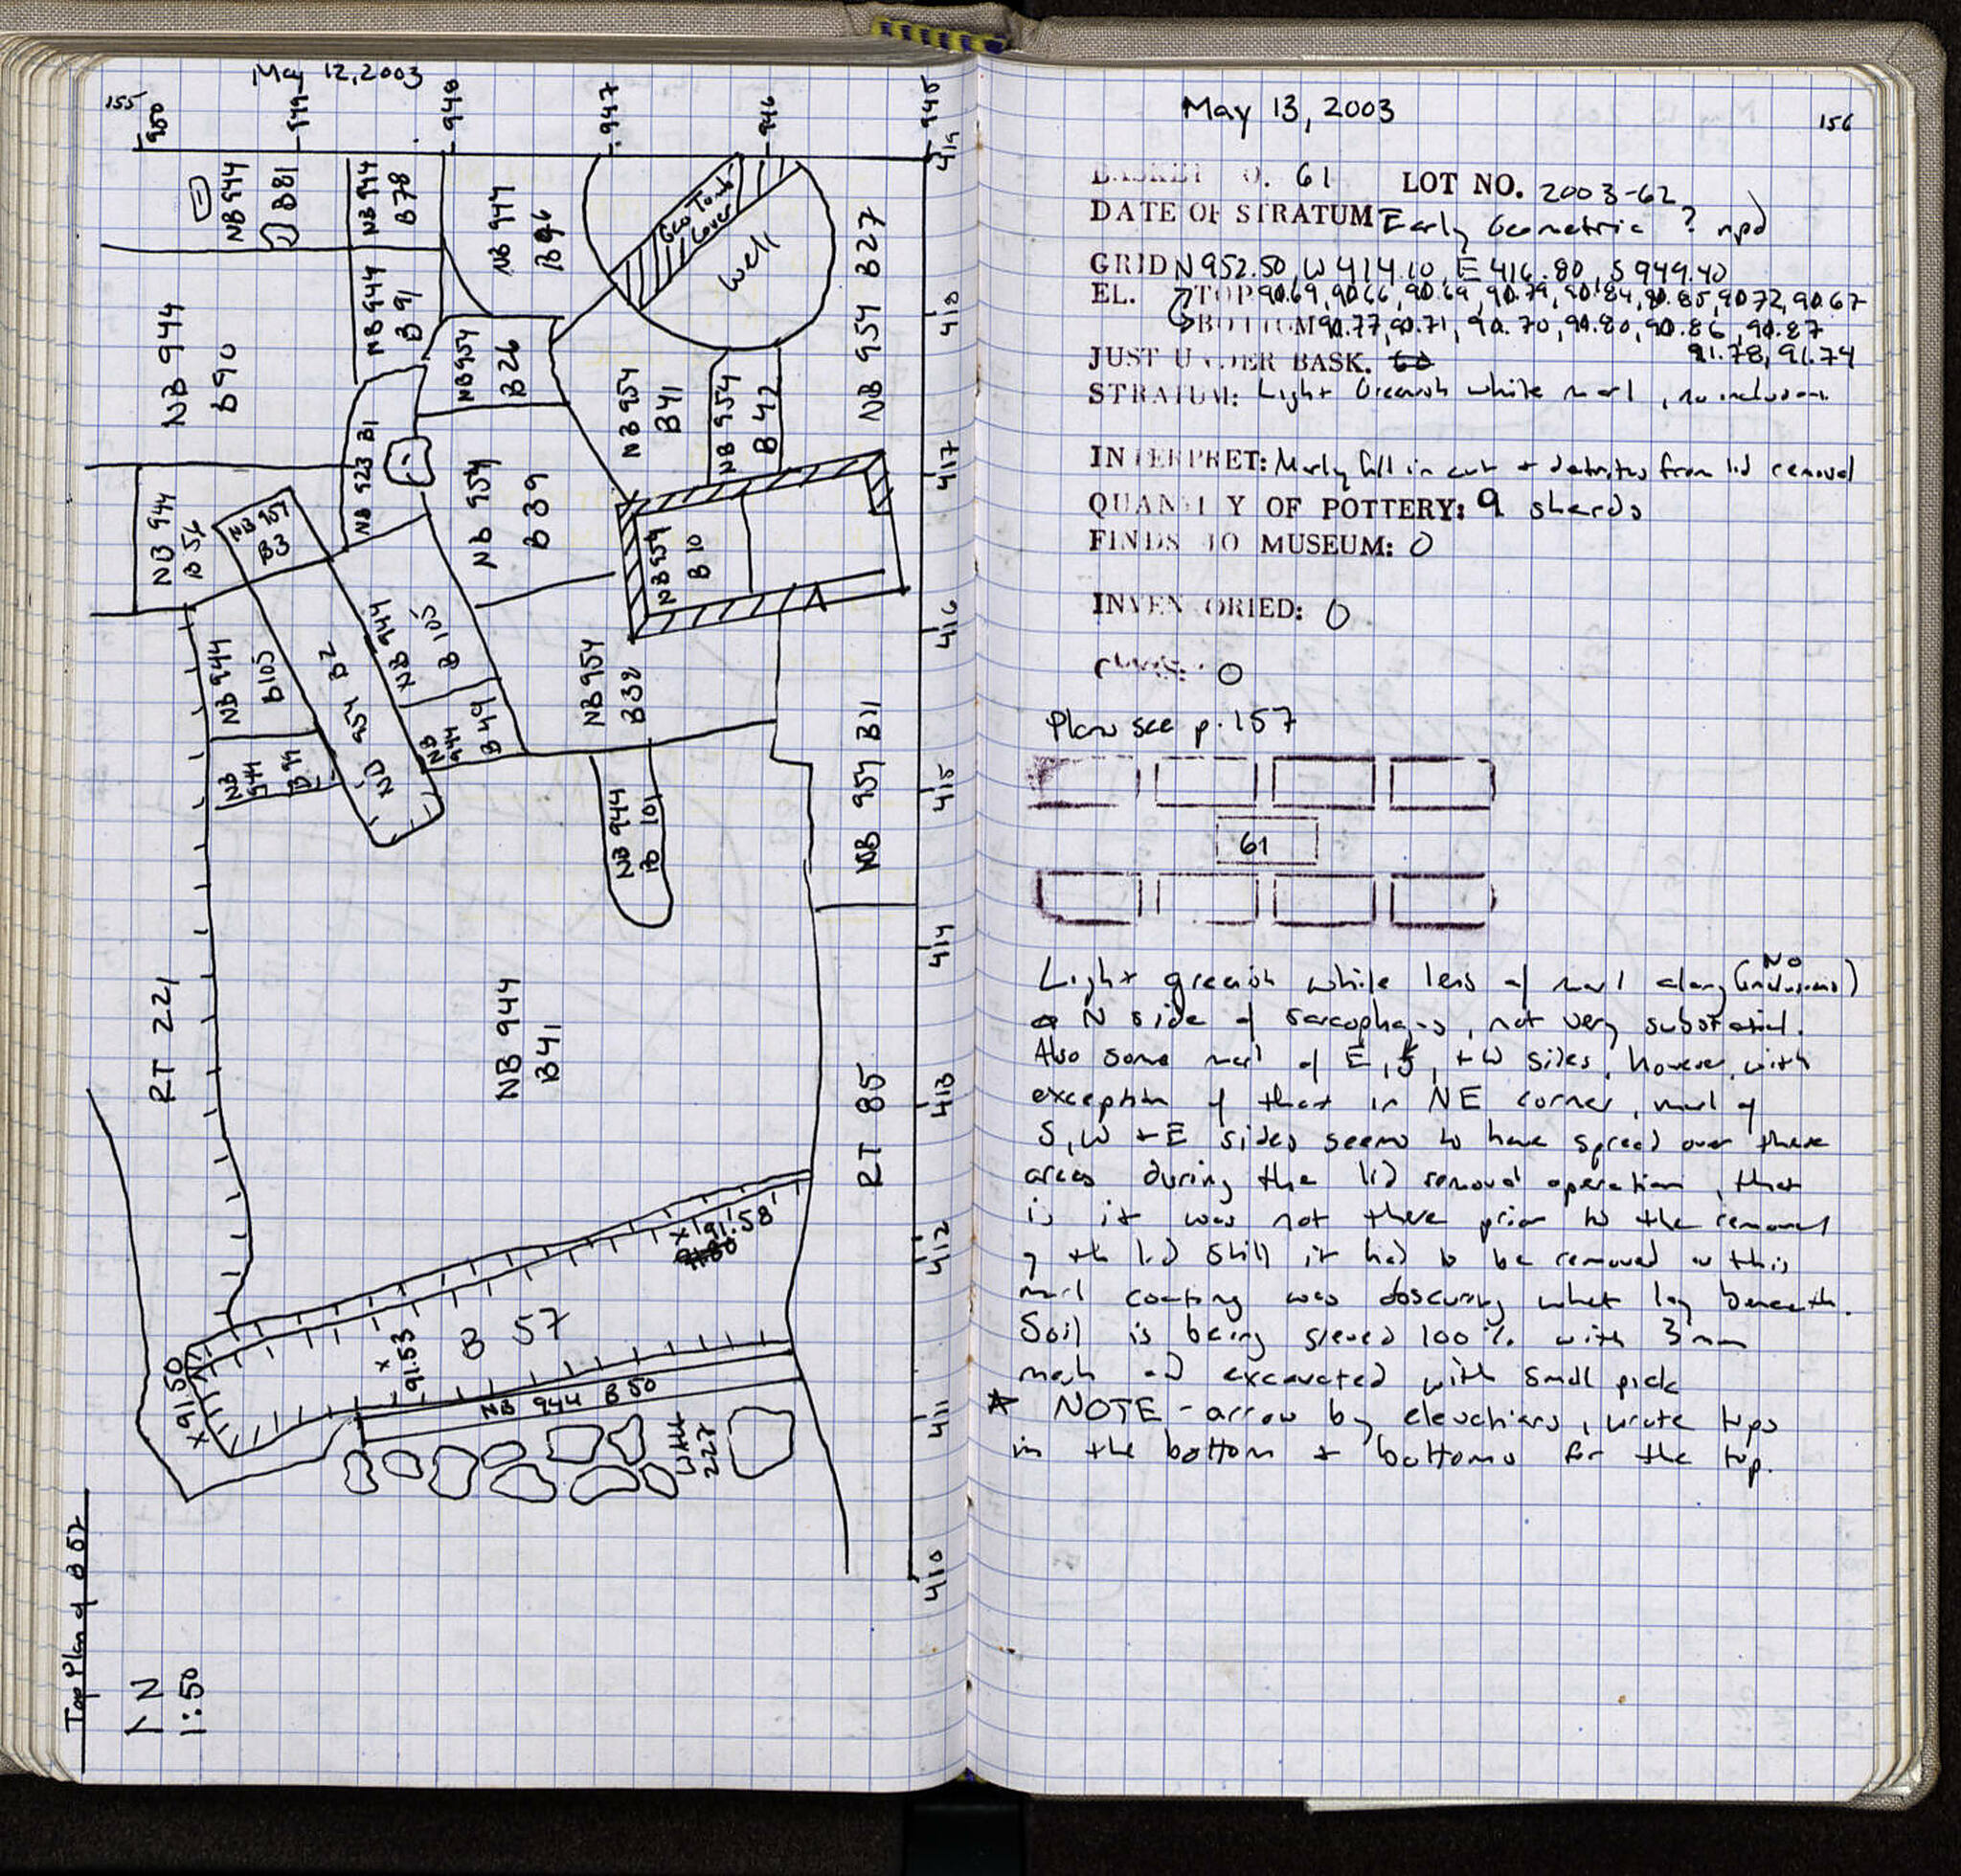 155
May 12, 2003
950
949
948
947
946
945
419
NB 944
B81
NB 944
B78
NB 944
B96
Geo Tomb
Cover
Well
NB 954 B27
NB 944
B 91
418
NB 944
B90
NB954
B26
NB 954
B41
NB 954
B 42
NB 923 B1
417
NB 944
B 56
NB 957
B3
NB 954
B39
NB954
B 10
416
NB 944
B103
NB 954 B2
NB 944
B 105
NB 954
B38
NB
944
B 94
NB
944
B 49
NB 954 B11
415
NB 944
B 101
414
RT 221
NB 944
B41
RT 85
413
412
x 91.58
x 91.53
B 57
x 91.50
NB 944 B 50
411
Wall
227
410
Top Plan of B 57
N
1:50
May 13, 2003
156
BASKET NO. 61 LOT NO. 2003-62
DATE OF STRATUM Early Geometric ? npd
GRID N952.50, W414.10, E 416.80, S 949.40
EL. TOP 90.69, 90.66, 90.69, 90.79, 90.84, 90.85, 90.72, 90.67
BOTTOM 90.77, 90.71, 90.70, 90.80, 90.86, 90.87
91.78, 91.74
JUST UNDER BASK. 60
STRATUM: Light Greenish white marl, no inclusions
INTERPRET: Marly fill in cut + detritus from lid removal
QUANTITY OF POTTERY: 9 sherds
FINDS TO MUSEUM: 0
INVENTORIED: 0
COINS: 0
Plan see p. 157
61
Light greenish white lens of marl along (No inclusions)
N side of sarcophagus, not very substantial.
Also some marl of E, S, + W sides, however, with
exception of that in NE corner, marl of
S, W + E sides seems to have spread over these
areas during the lid removal operation, that
is it was not there prior to the removal
of the lid still it had to be removed as this
marl coating was obscuring what lay beneath.
Soil is being sieved 100% with 3mm
mesh and excavated with small pick
* NOTE - arrow by elevations, wrote tops
in the bottom + bottoms for the top.